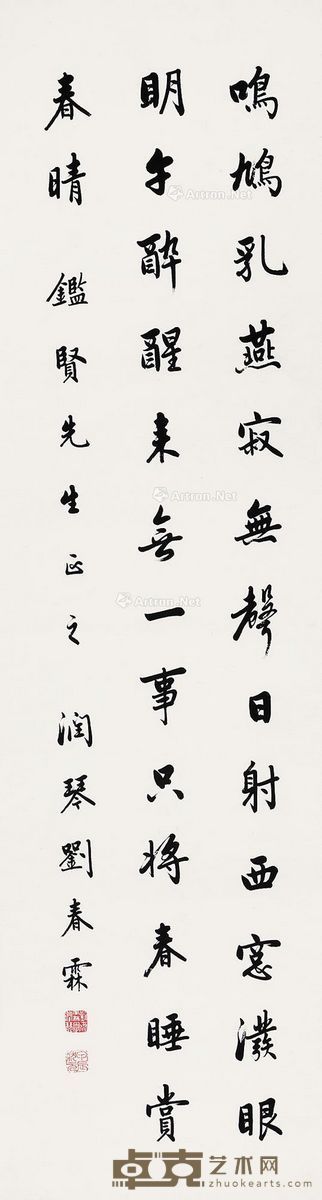 鳴鳩乳燕寂無聲日射西窓潑眼
明午醉醒来無一事只將春睡賞
春晴
鑑賢先生正之
潤琴劉春霖
Artron.Net
Artron.Net
Artron.Net
卓克艺术网
zhuokearts.com